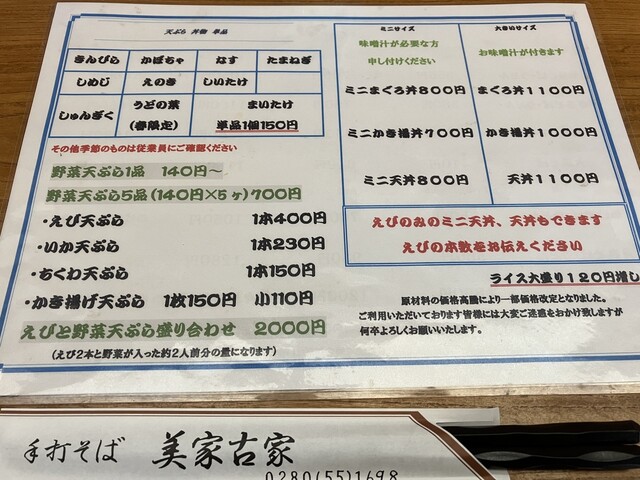 天ぷら 丼物 単品
きんぴら かぼちゃ なす たまねぎ
しめじ えのき しいたけ
しゅんぎく うどの葉 (春限定) まいたけ 単品1個150円
その他季節のものは従業員にご確認ください
野菜天ぷら1品 140円～
野菜天ぷら5品(140円×5ヶ)700円
・えび天ぷら 1本400円
・いか天ぷら 1本230円
・ちくわ天ぷら 1本150円
・かき揚げ天ぷら 1枚150円 小110円
えびと野菜天ぷら盛り合わせ 2000円
(えび2本と野菜が入った約2人前分の量になります)
ミニサイズ 大きいサイズ
味噌汁が必要な方 お味噌汁が付きます
申し付けください
ミニまぐろ丼800円 まぐろ丼1100円
ミニかき揚丼700円 かき揚丼1000円
ミニ天丼800円 天丼1100円
えびのみのミニ天丼、天丼もできます
えびの本数をお伝えください
ライス大盛り120円増し
原材料の価格高騰により一部価格改定となりました。
ご利用いただいております皆様には大変ご迷惑をおかけ致しますが
何卒よろしくお願いいたします。
手打そば 美家古家
0280(55)1698